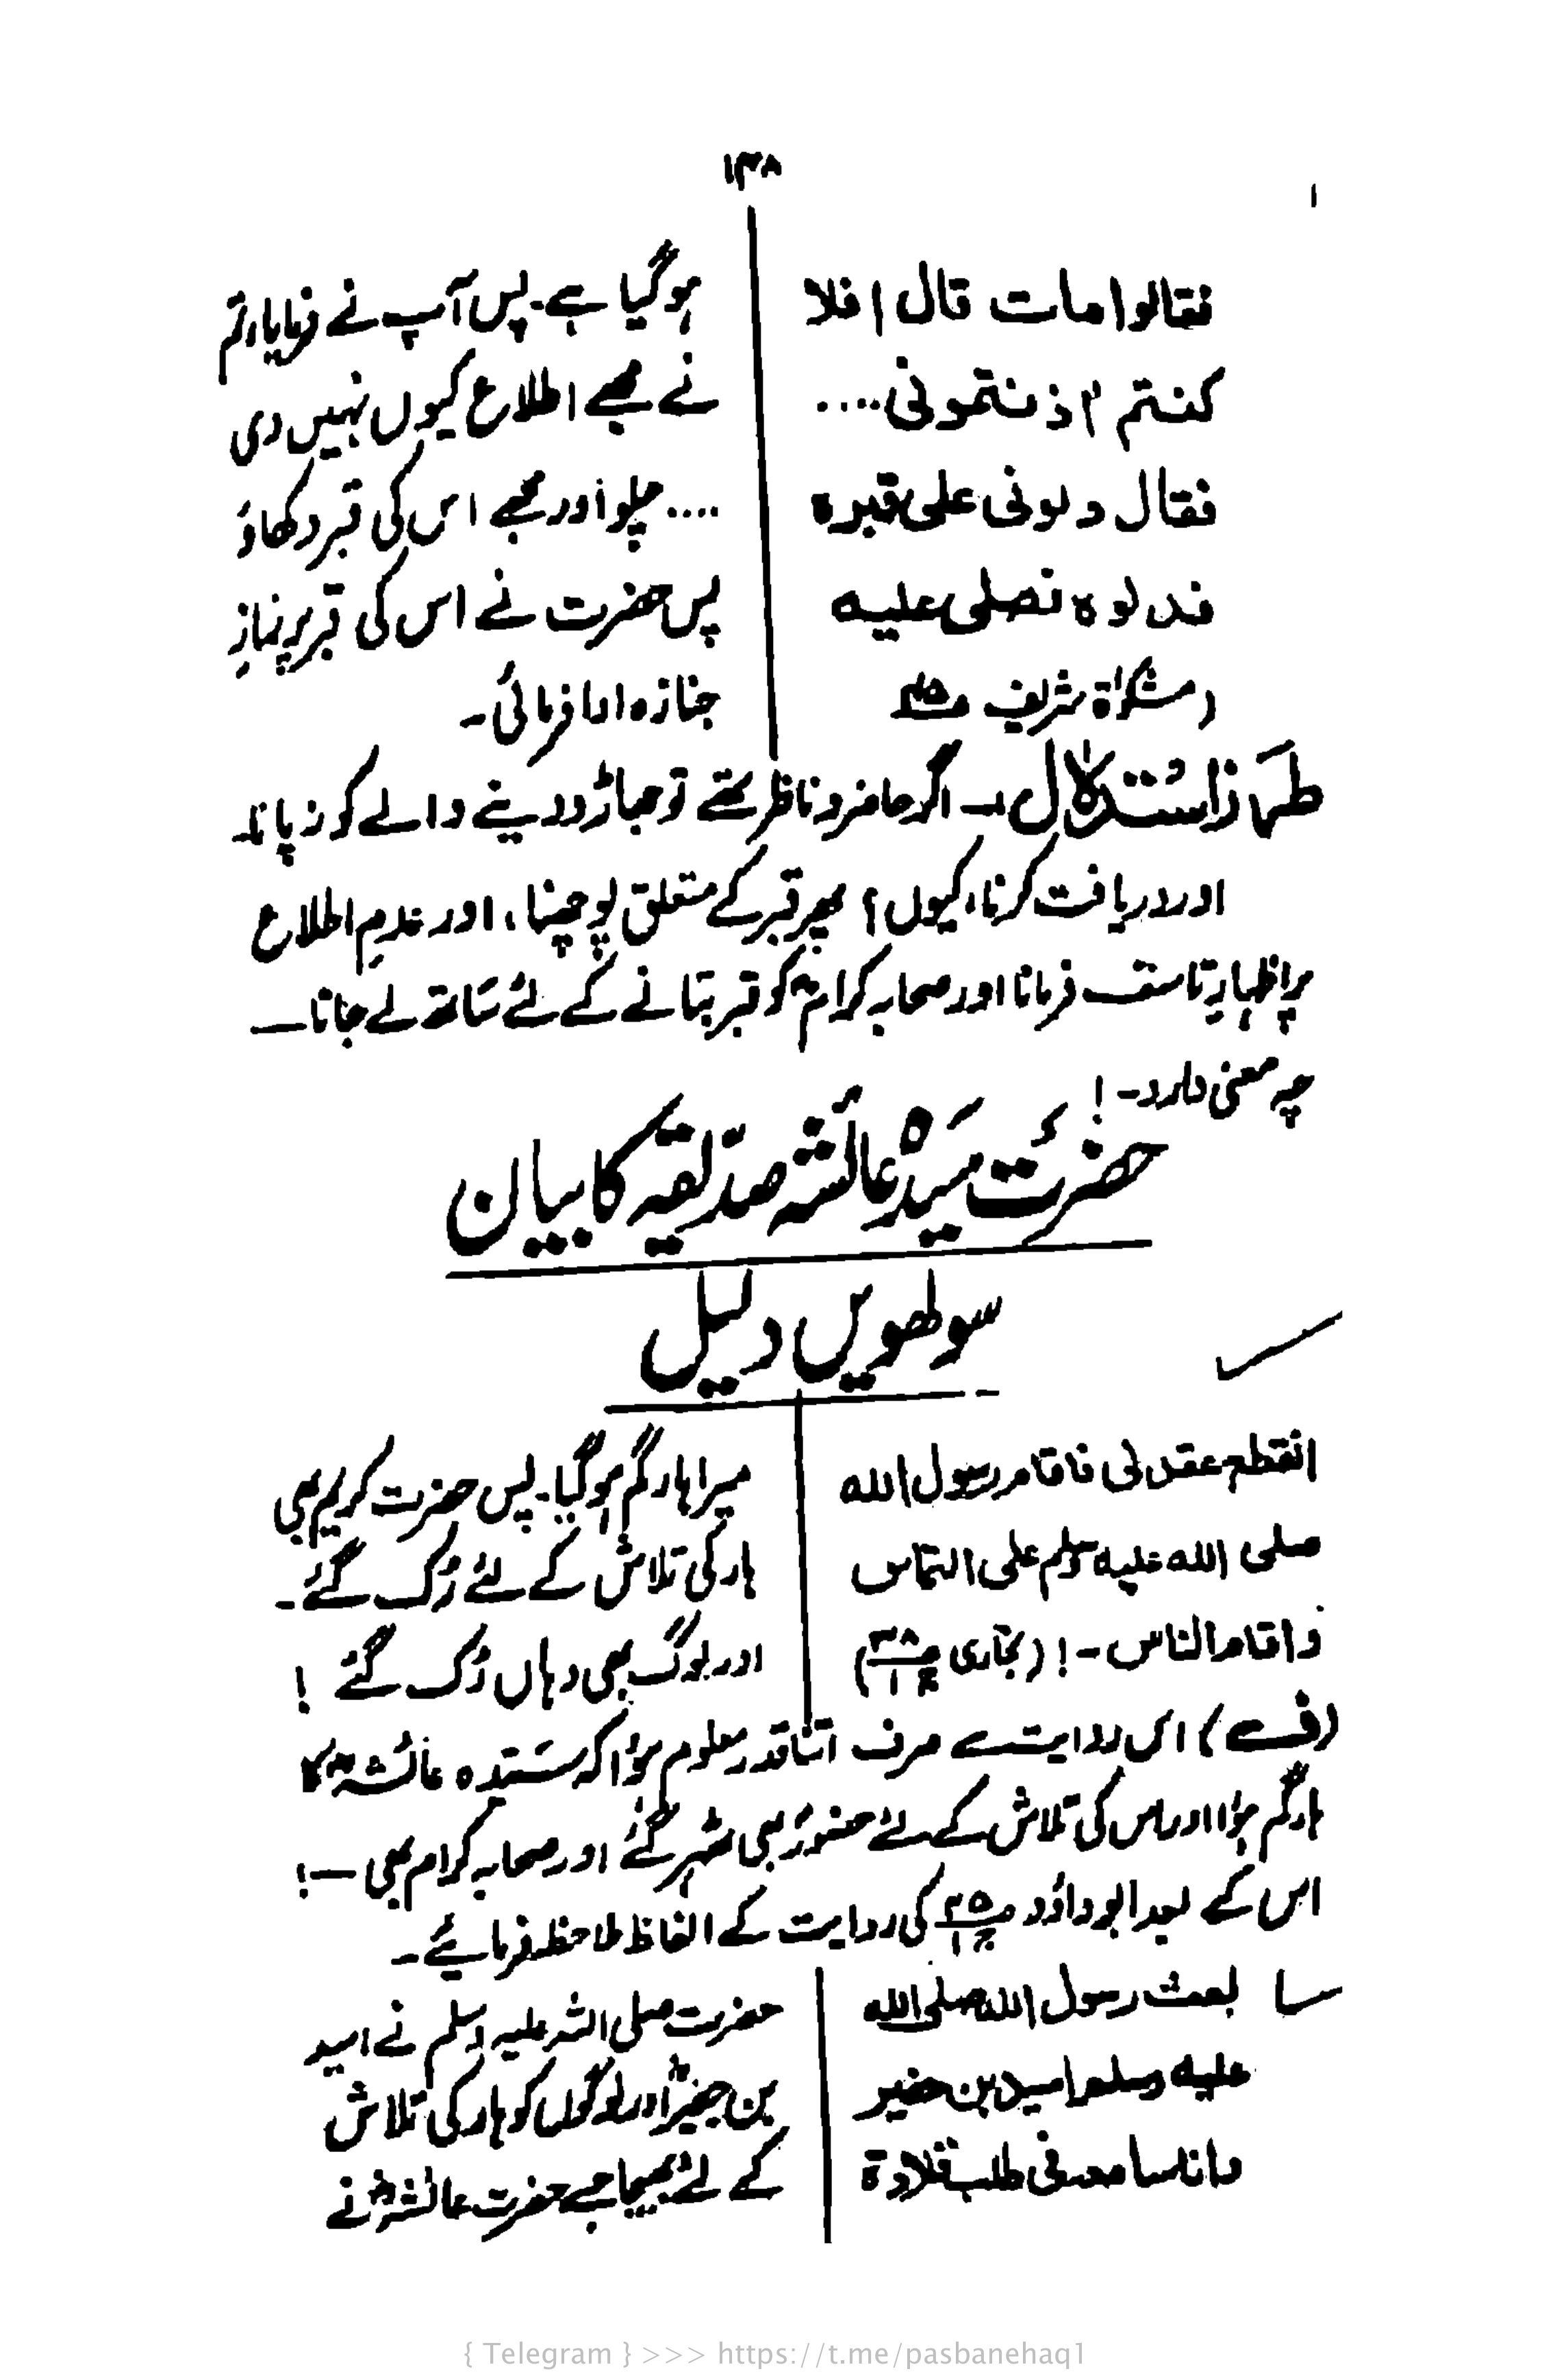 ۱۳۸
فقالوا مات قال افلا
کنتم اذنتمونی....
فقال دلونی علی قبره
فدلوه فصلی علیه
(مشکوٰۃ شریف
ہوگیا ہے۔ پس آپ نے فرمایا، تم
نے مجھے اطلاع کیوں نہیں دی
.... چلو اور مجھے اس کی قبر دکھاؤ
پس حضرت نے اس کی قبر پر نمازِ
جنازہ ادا فرمائی۔
طرز استدلال :۔ اگر حاضر و ناظر تھے تو جھاڑو دینے والے کو نہ پانا
اور دریافت کرنا، کیوں؟ پھر قبر کے متعلق پوچھنا، اور عدمِ اطلاع
پر اظہارِ تاسف فرمانا اور صحابہ کرامؓ کو قبر بتانے کے لئے ساتھ لے جانا۔
چہ معنی دارد۔!
حضرت سیدہ عائشہ صدیقہ کا بیان
سولھویں دلیل
انقطع عقد لی فاقام رسول الله
صلی الله علیه وسلم علی التماسه
واقام الناس۔! (بخاری ۴۸/۱)
میرا ہار گم ہوگیا۔ پس حضرت کریم بھی
ہار کی تلاش کے لئے رُک گئے۔
اور لوگ بھی وہاں رُک گئے !
(ف) اس روایت سے صرف اتنا قدر معلوم ہؤا کہ سیّدہ عائشہؓ کا
ہار گم ہؤا اور اس کی تلاش کے لئے حضورؐ بھی ٹھہر گئے اور صحابہ کرام بھی۔!
اس کے بعد ابو داؤد ۴۵/۱ کی روایت کے الفاظ ملاحظہ فرمایئے۔
بعث رسول الله صلی الله
علیه وسلم اسید بن حضیر
و اناسا معه فی طلب قلادة
حضرت صلی اللہ علیہ وسلم نے اسید
بن حضیرؓ اور لوگوں کو ہار کی تلاش
کے لئے بھیجا جسے حضرت عائشہؓ نے
{ Telegram } >>> https://t.me/pasbanehaq1